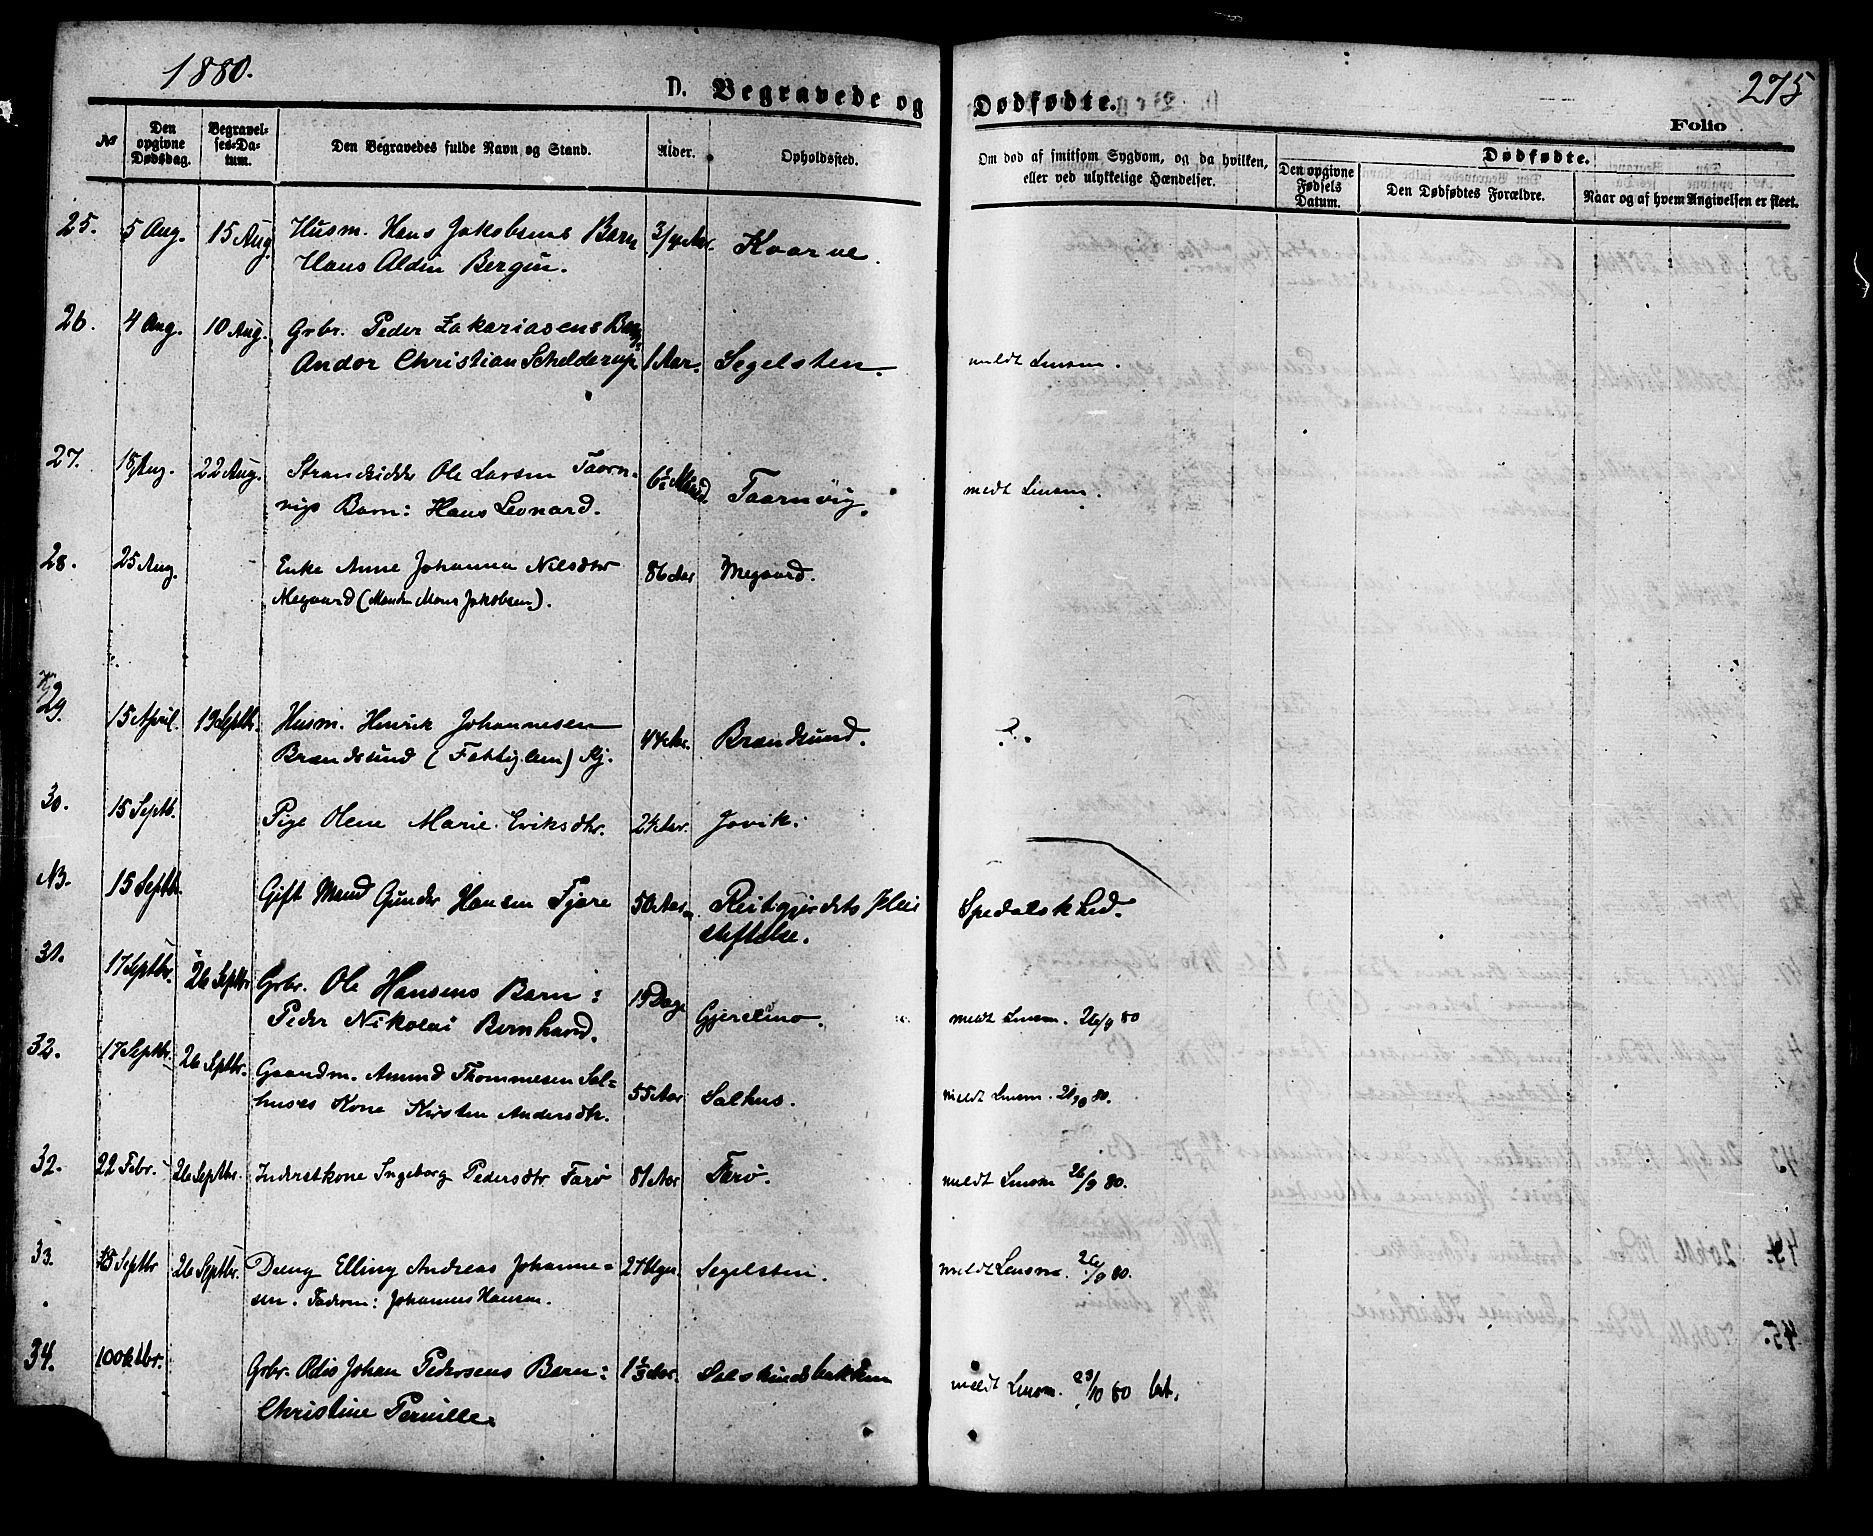 1880.
D. Begravede og Dødfødte.
275
Folio
№
Den opgivne Dødsdag.
Begravelses-Datum.
Den Begravedes fulde Navn og Stand.
Alder.
Opholdssted.
Om død af smitsom Sygdom, og da hvilken, eller ved ulykkelige Hændelser.
Dødfødte.
Den opgivne Fødsels Datum.
Den Dødfødtes Forældre.
Naar og af hvem Angivelsen er skeet.
25. 5 Aug. 15 Aug. Husm. Hans Jakobsens Barn 3/4 Aar. Kvarve.
Hans Aldin Bergin.
26. 4 Aug. 10 Aug. Grbr. Peder Zakariasens Barn
Andor Christian Schelderup 1 Aar. Segelsten. meldt Lensm.
27. 18 Aug. 22 Aug. Strandsidder Ole Larsen Taarn-
vigs Barn: Hans Leonard. 6½ Maaned. Taarnvig. meldt Lensm.
28. 25 Aug. Enke Anne Johanna Nilsdtr 86 Aar Megaard.
Megaard (Manden Mons Jakobsen).
29. 15 April. 19 Septbr. Husm. Henrik Johannesen 44 Aar. Brændsund. ?.
Brændsund (Fattiglem) Kj.
30. 15 Septb. Pige Olene Marie Eriksdtr. 24 Aar. Jovik.
NB. 15 Septbr. Gift Mand Gunder Hansen Fjøre 50 Aar Reitgjerdets Plei
stiftelse. Spedalskhed.
31. 17 Septbr. 26 Septbr Grbr. Ole Hansens Barn:
Peder Nikolai Bernhard. 15 Dage Gjerelmo. meldt Lensm. 26/9 80
32. 17 Septbr. 26 Septbr. Gaardm. Amund Thommesen Sal-
huses Kone Kirsten Andersdtr. 55 Aar Salhus. meldt Lensm. 26/9 80.
32. 22 Febr. 26 Septbr. Inderstkone Ingeborg Pedersdtr Tarø 81 Aar Tarø. meldt Lensm 26/9 80.
33. 15 Septbr 26 Septbr. Dreng Elling Andreas Johanne- 24 Uger. Segelsten. meldt Lensm. 26/9 80.
sen. Faderen: Johannes Hansen.
34. 10 Oktbr. Grbr. Odis Johan Pedersens Barn: 1⅓ Aar. Salskindsbakken meldt Lensm. 23/10 80
Christine Pernille.